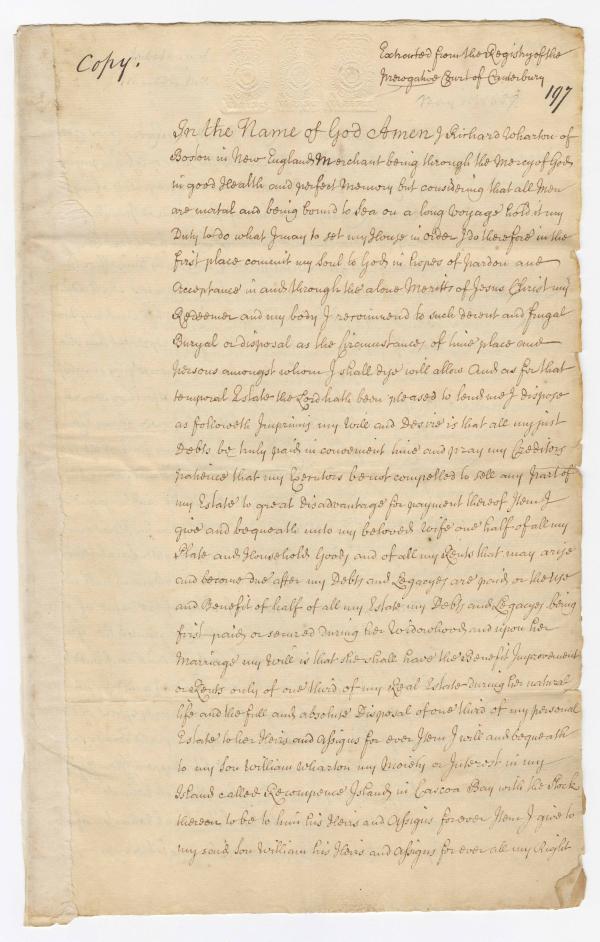 Copy.
Extracted from the Registry of the
Prerogative Court of Canterbury
197
In the Name of God Amen I Richard Wharton of
Boston in New England Merchant being through the Mercy of God
in good Health and perfect Memory but considering that all Men
are mortal and being bound to Sea on a long Voyage hold it my
Duty to do what I may to set my House in order I do therefore in the
first place commit my Soul to God in hopes of Pardon and
Acceptance in and through the alone Meritts of Jesus Christ my
Redeemer and my body I recommend to such decent and frugal
Buryal or disposal as the Circumstances of time place and
persons amongst whom I shall dye will allow And as for that
temporal Estate the Lord hath been pleased to lend me I dispose
as followeth Imprimis my Will and Desire is that all my just
Debts be truly paid in convenient time and pray my Creditors
patience that my Executors be not compelled to sell any Part of
my Estate to great Disadvantage for payment thereof Item I
give and bequeath unto my beloved Wife one half of all my
Plate and Household Goods and of all my Rents that may arise
and become due after my Debts and Legacyes are paid or the Use
and Benefit of half of all my Estate my Debts and Legacyes being
first paid or secured during her Widowhood and upon her
Marriage my Will is that she shall have the Benefit Improvement
or Rents only of one third of my Real Estate during her natural
life and the full and absolute Disposal of one third of my personal
Estate to her Heirs and Assigns for ever Item I will and bequeath
to my Son William Wharton my Moiety or Interest in my
Island called Recompence Island in Cascoa Bay with the Stock
thereon to be to him his Heirs and Assigns for ever Item I give to
my said Son William his Heirs and Assigns for ever all my Right